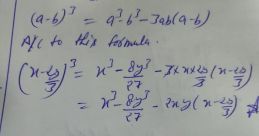 (a-b)³ = a³-b³-3ab(a-b)
A/C to this formula.
(x-2y/3)³ = x³-8y³/27-3×x×2y/3(x-2y/3)
= x³-8y³/27-2xy(x-2y/3)